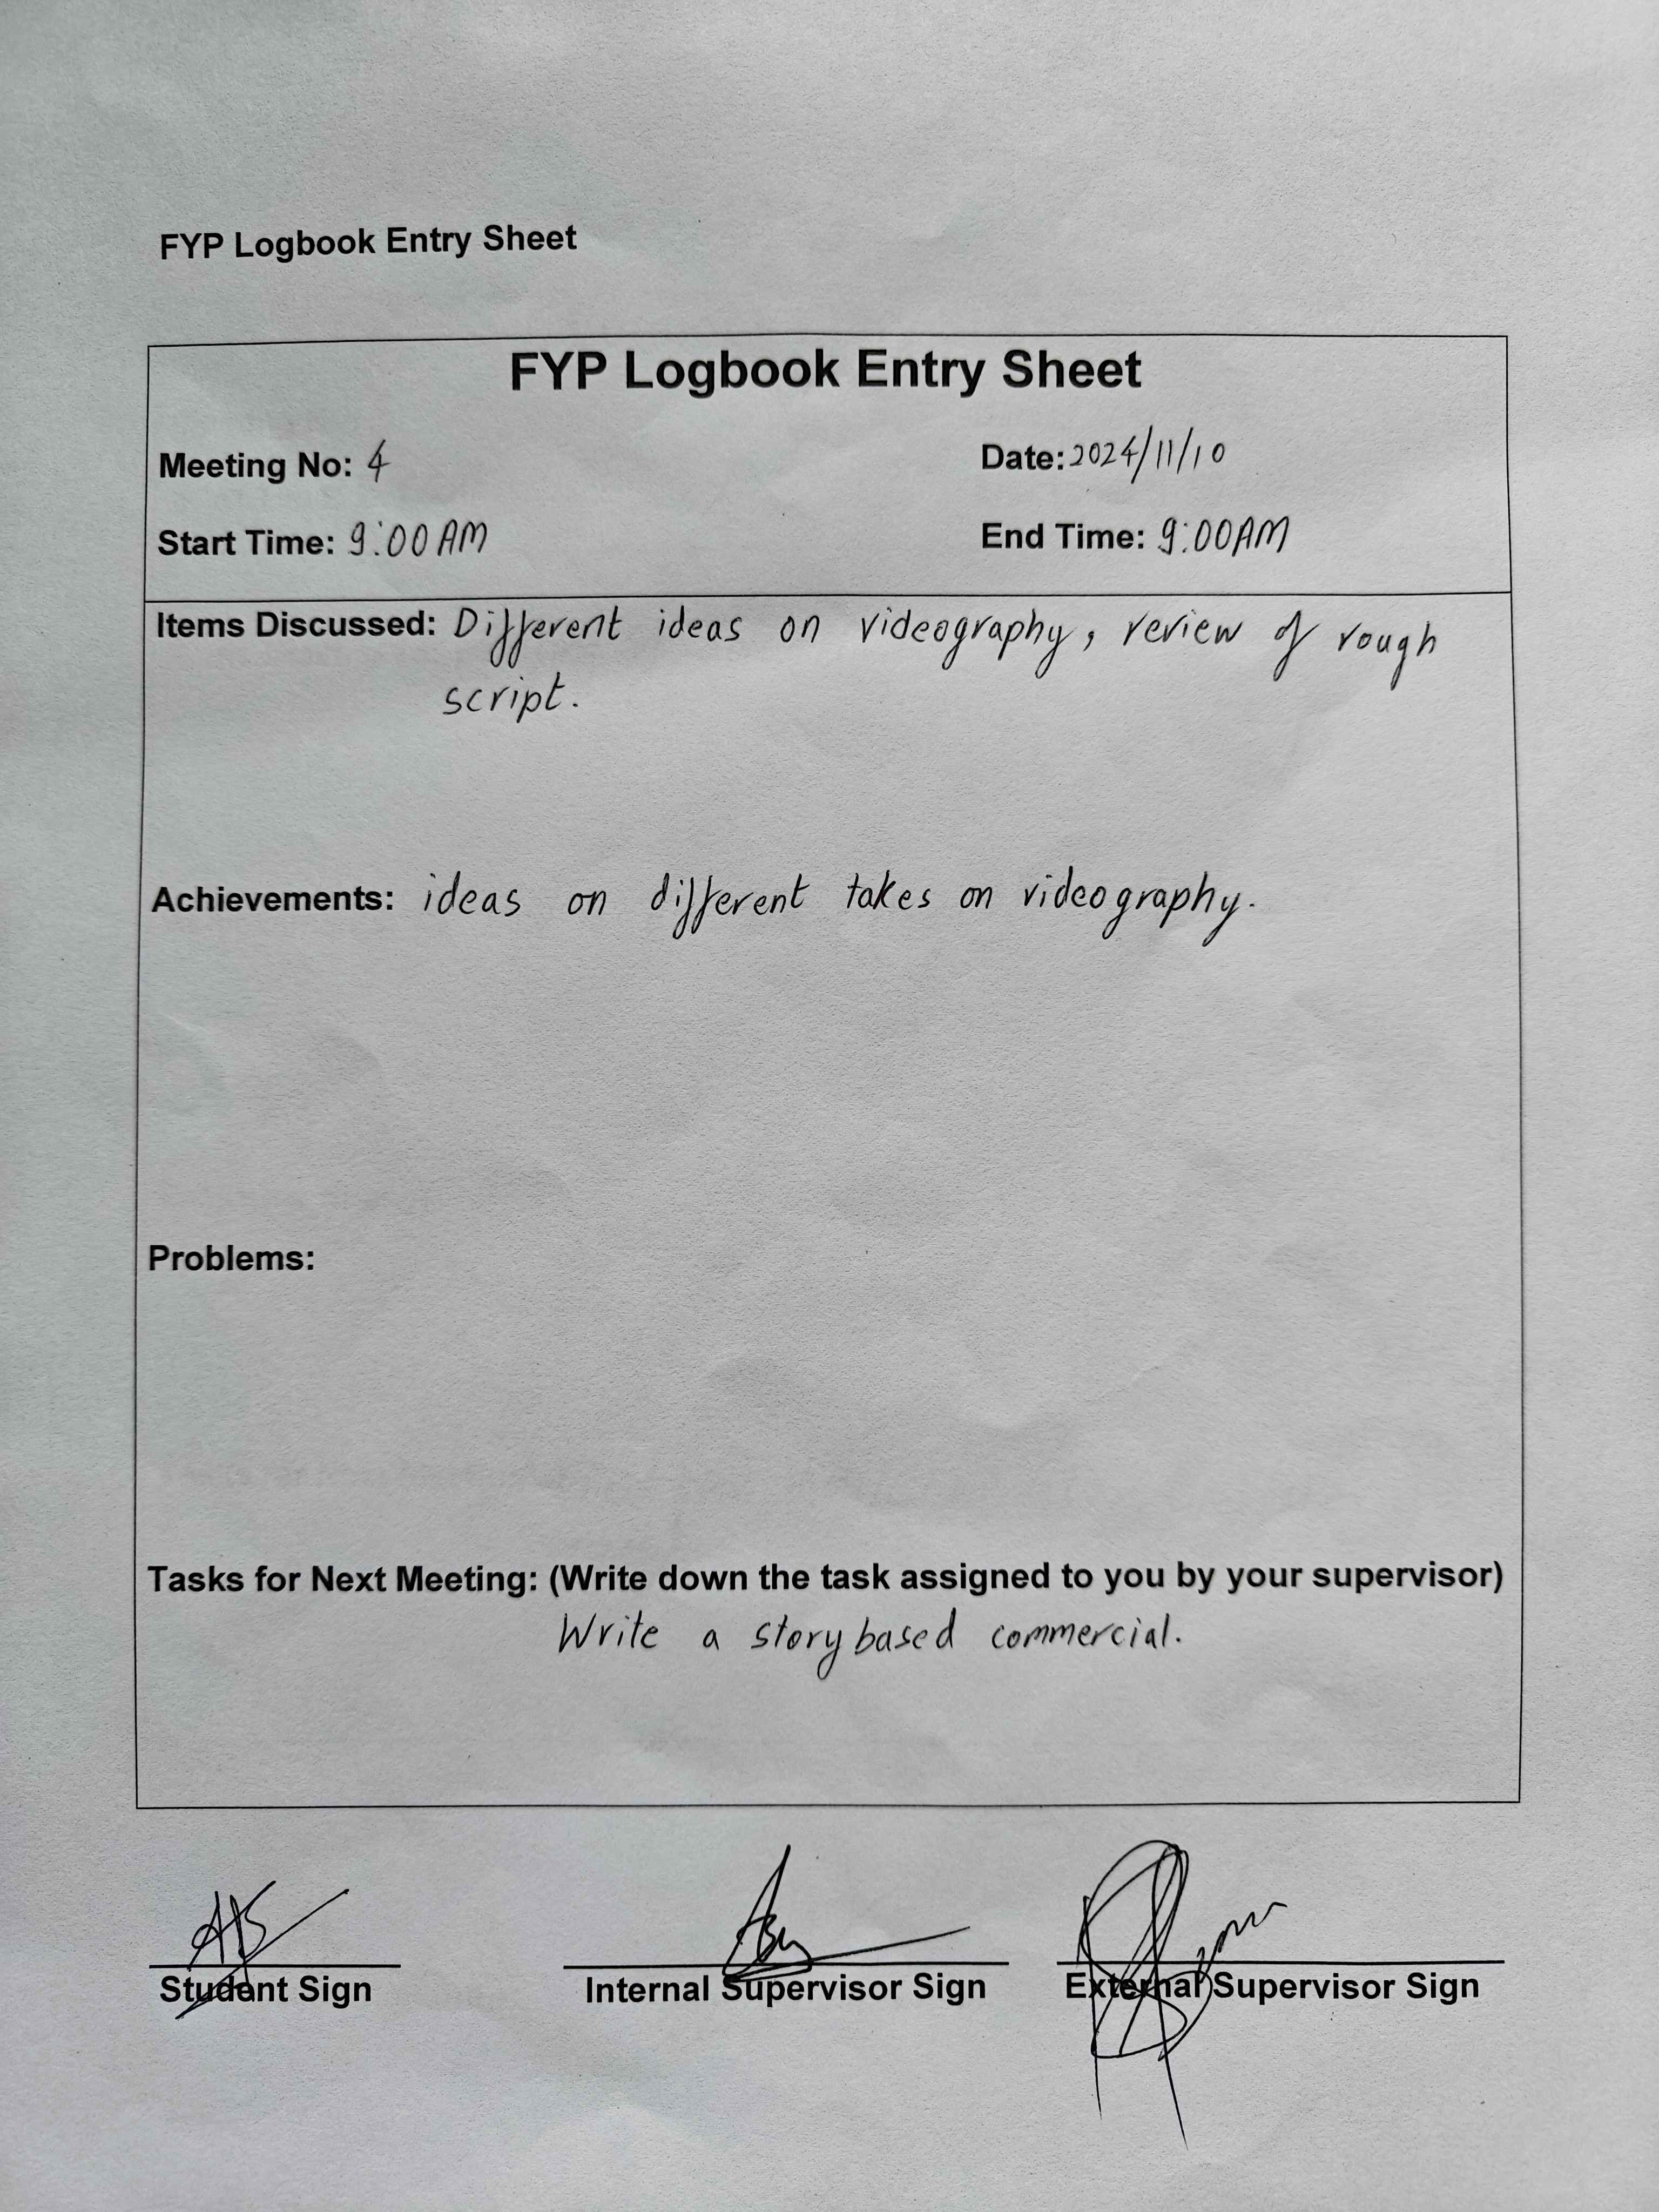 FYP Logbook Entry Sheet
FYP Logbook Entry Sheet
Meeting No: 4
Date: 2024/11/10
Start Time: 9:00 AM
End Time: 9:00AM
Items Discussed: Different ideas on videography, review of rough
script.
Achievements: ideas on different takes on videography.
Problems:
Tasks for Next Meeting: (Write down the task assigned to you by your supervisor)
Write a story based commercial.
Student Sign
Internal Supervisor Sign
External Supervisor Sign